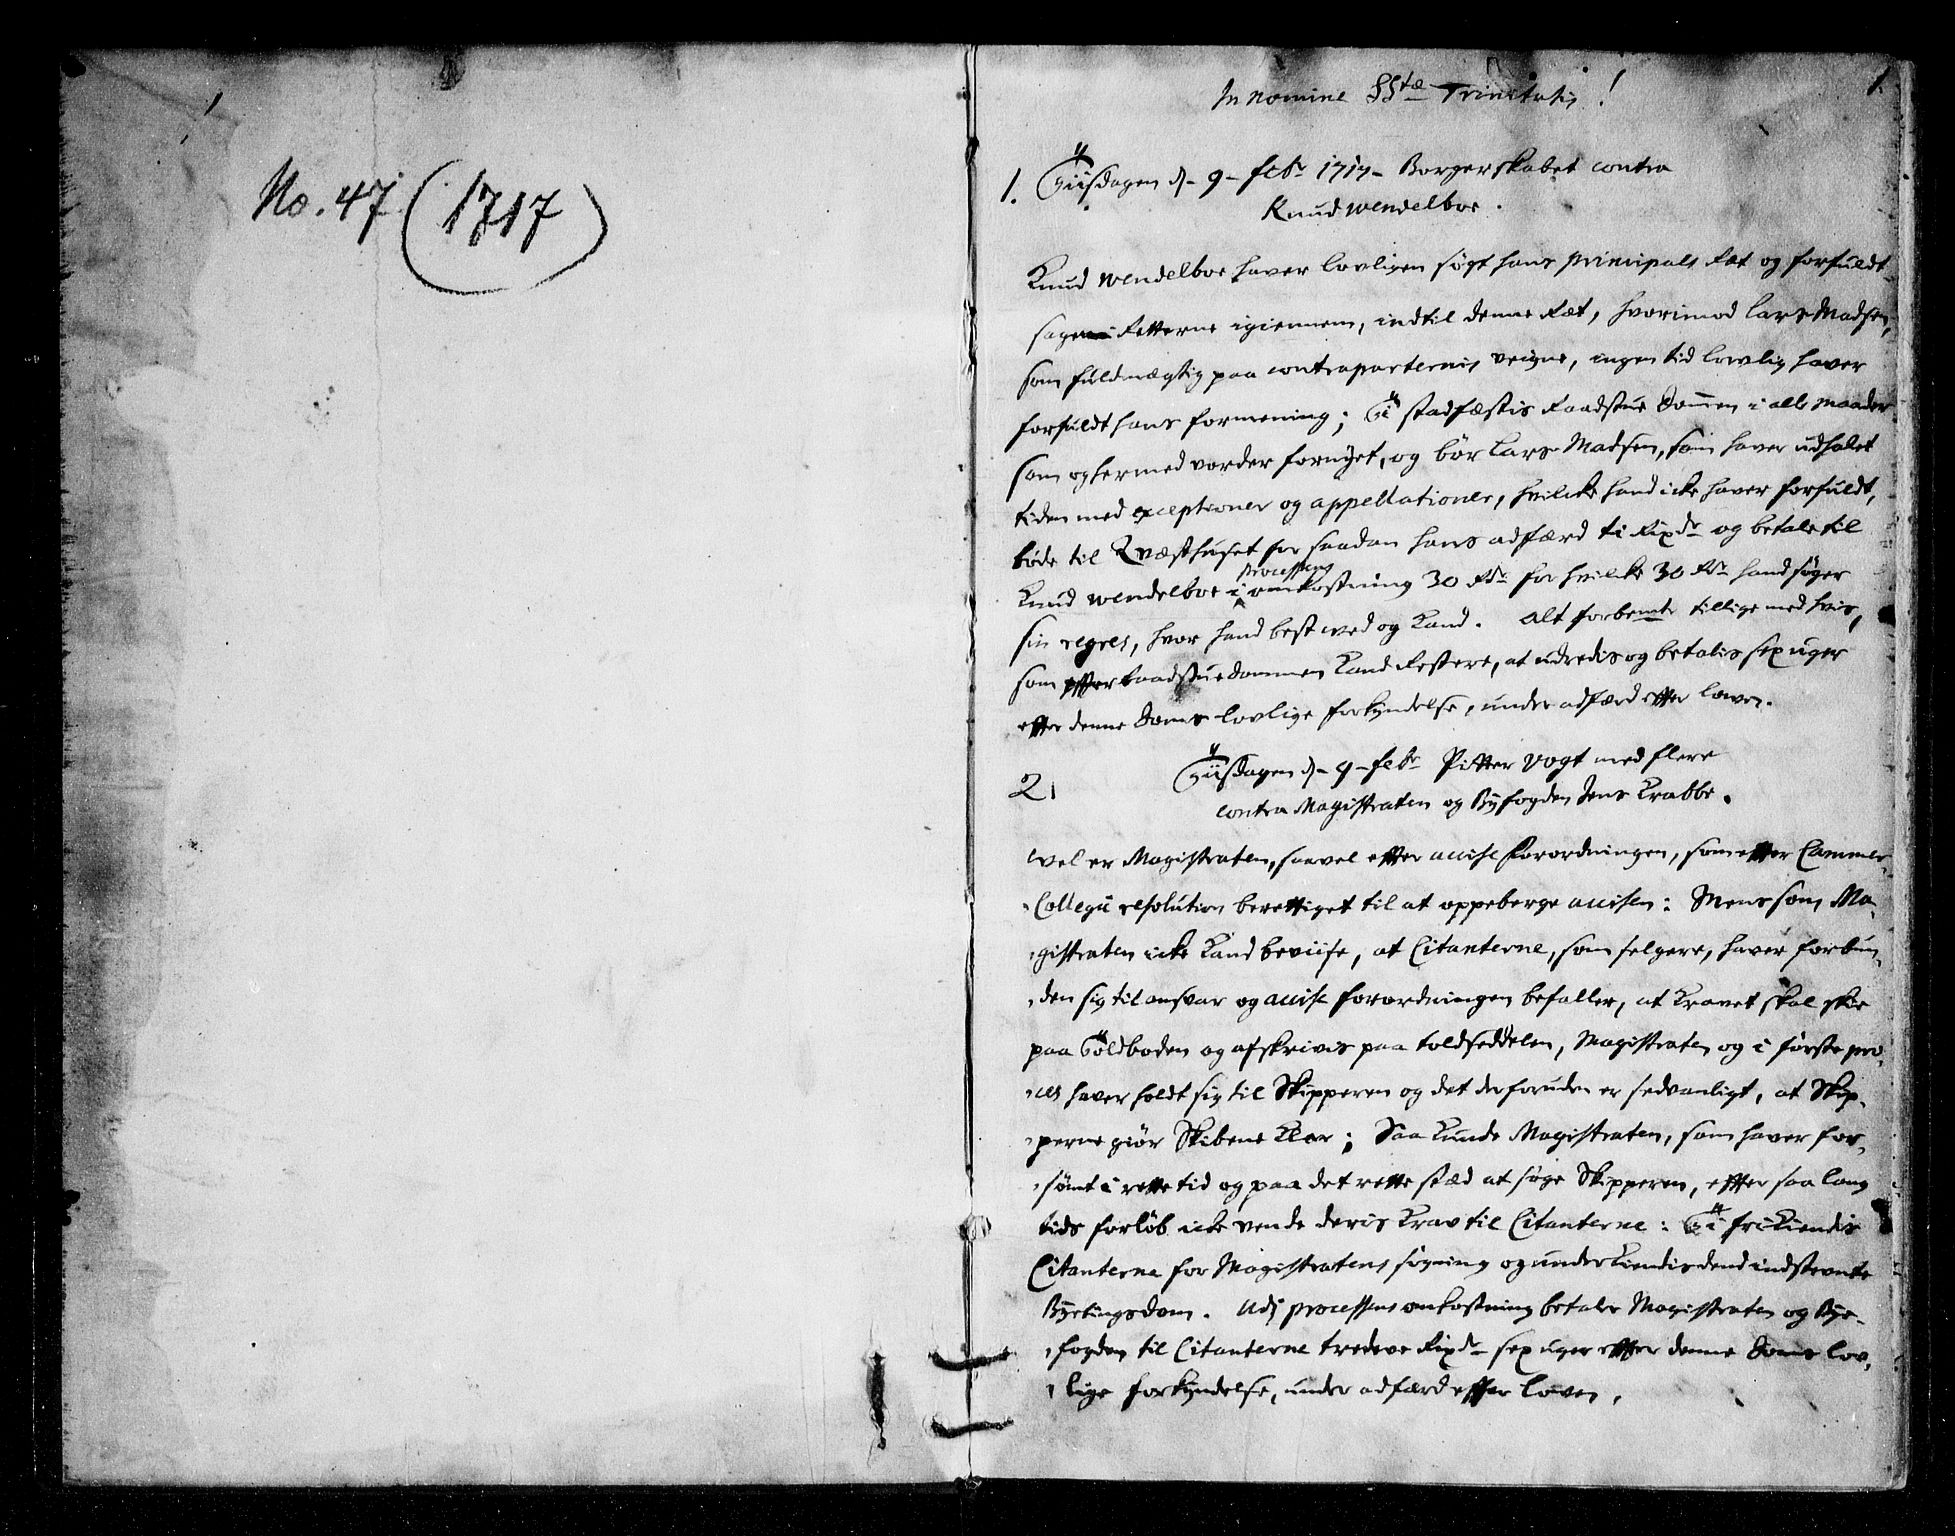 No. 47. (1717)
1.
In Nomine SStæ Trinitatis!
1. Tiisdagen d. 9 Febr 1717. Borgerskabet contra
Knud Wendelboe.
Knud Wendelboe haver lovligen søgt hans principals Ræt og forfuldt
sagen Retterne igiennem, indtil denne Ræt, hvorimod Lars Madsen,
som fuldmægtig paa contraparternis veigne, ingen tid lovlig haver
forfuldt hans formening; Ti stadfæstis Raadstue Dommen i alle maader
som og hermed vorder fornyet, og bør Lars Madsen, som haver udhalet
tiden med exceptioner og appellationer, hvilcke hand icke haver forfuldt,
bøde til Qvæsthuset for saadan hans adfærd ti Rixdr og betale til
Knud Wendelboe i processens omkostning 30 Rdr for hvilcke 30 Rdr hand søger
sin regres, hvor hand best wed og Kand. Alt forbemte tillige med hvis,
som efter Raadstuedommen Kand Restere, at udredis og betalis sex uger
efter denne Doms lovlige forkyndelse, under adfærd efter loven.
2. Tiisdagen d. 9 Febr Pitter Vogt med flere
contra Magistraten og Byfogden Jens Krabbe.
Wel er Magistraten, saavel efter accise Forordningen, som efter Cammer
Collegii resolution berettiget til at oppeberge accisen: Mens som Ma-
gistraten icke Kand beviise, at Citanterne, som selgere, haver forbun-
den sig til ansvar og accise forordningen befaller, at Kravet skal skee
paa Toldboden og afskrivis paa toldseddelen, Magistraten og i første pro-
ces haver holdt sig til Skipperen og det desforuden er sedvanligt, at Skip-
perne giør Skibene Klar; Saa Kunde Magistraten, som haver for-
sømt i rette tid og paa det rette stæd at søge Skipperen, efter saa lang
tids forløb icke vende deris Krav til Citanterne: Ti frikiendis
Citanterne for Magistratens søgning og underkiendis dend indstevnte
Byetingsdom. Udj processens omkostning betaler Magistraten og Bye-
fogden til Citanterne tredeve Rixdr sex uger efter denne Doms lov-
lige forkyndelse, under adfærd efter loven.